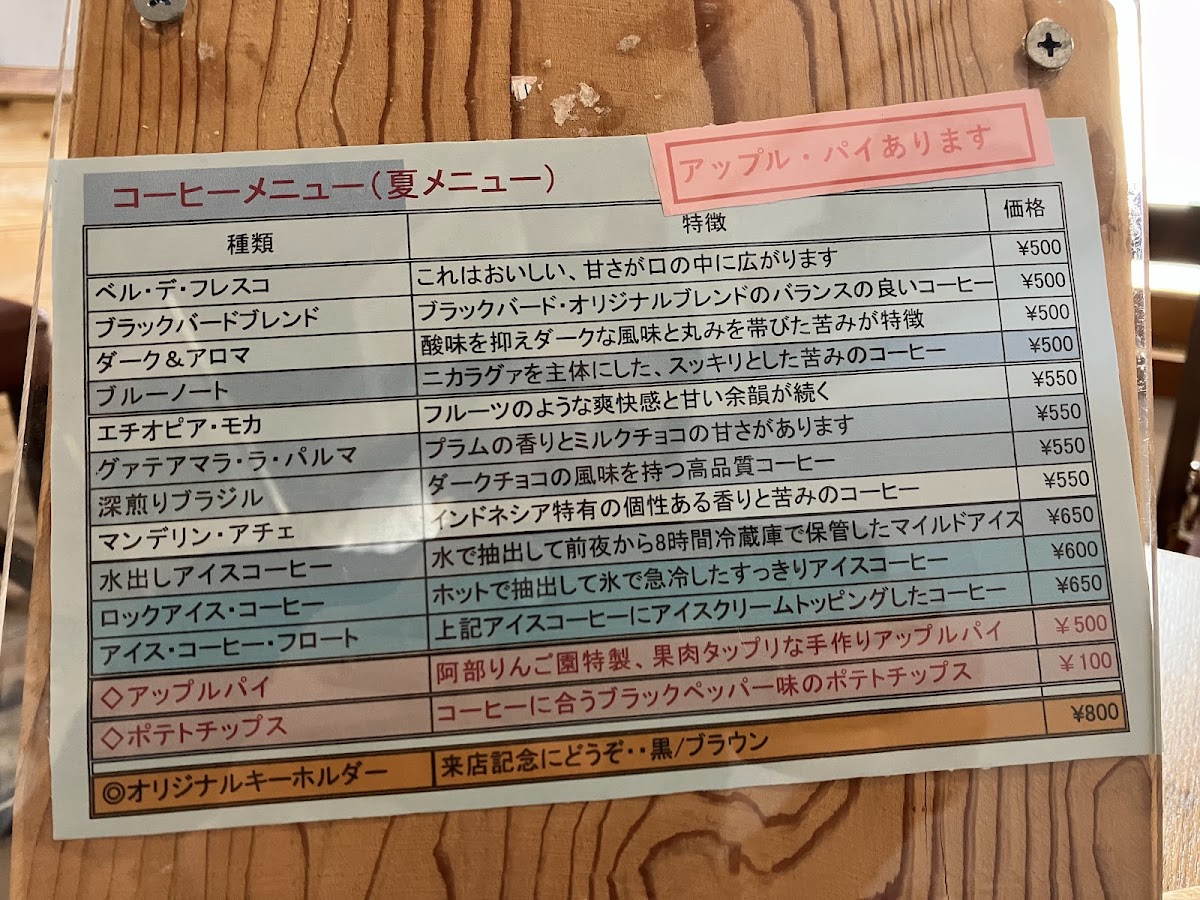 アップル・パイあります
コーヒーメニュー(夏メニュー)
種類 特徴 価格
ベル・デ・フレスコ これはおいしい、甘さが口の中に広がります ¥500
ブラックバードブレンド ブラックバード・オリジナルブレンドのバランスの良いコーヒー ¥500
ダーク&アロマ 酸味を抑えダークな風味と丸みを帯びた苦みが特徴 ¥500
ブルーノート ニカラグァを主体にした、スッキリとした苦みのコーヒー ¥500
エチオピア・モカ フルーツのような爽快感と甘い余韻が続く ¥550
グァテアマラ・ラ・パルマ プラムの香りとミルクチョコの甘さがあります ¥550
深煎りブラジル ダークチョコの風味を持つ高品質コーヒー ¥550
マンデリン・アチェ インドネシア特有の個性ある香りと苦みのコーヒー ¥550
水出しアイスコーヒー 水で抽出して前夜から8時間冷蔵庫で保管したマイルドアイス ¥650
ロックアイス・コーヒー ホットで抽出して氷で急冷したすっきりアイスコーヒー ¥600
アイス・コーヒー・フロート 上記アイスコーヒーにアイスクリームトッピングしたコーヒー ¥650
◇アップルパイ 阿部りんご園特製、果肉タップリな手作りアップルパイ ¥500
◇ポテトチップス コーヒーに合うブラックペッパー味のポテトチップス ¥100
◎オリジナルキーホルダー 来店記念にどうぞ・・黒/ブラウン ¥800